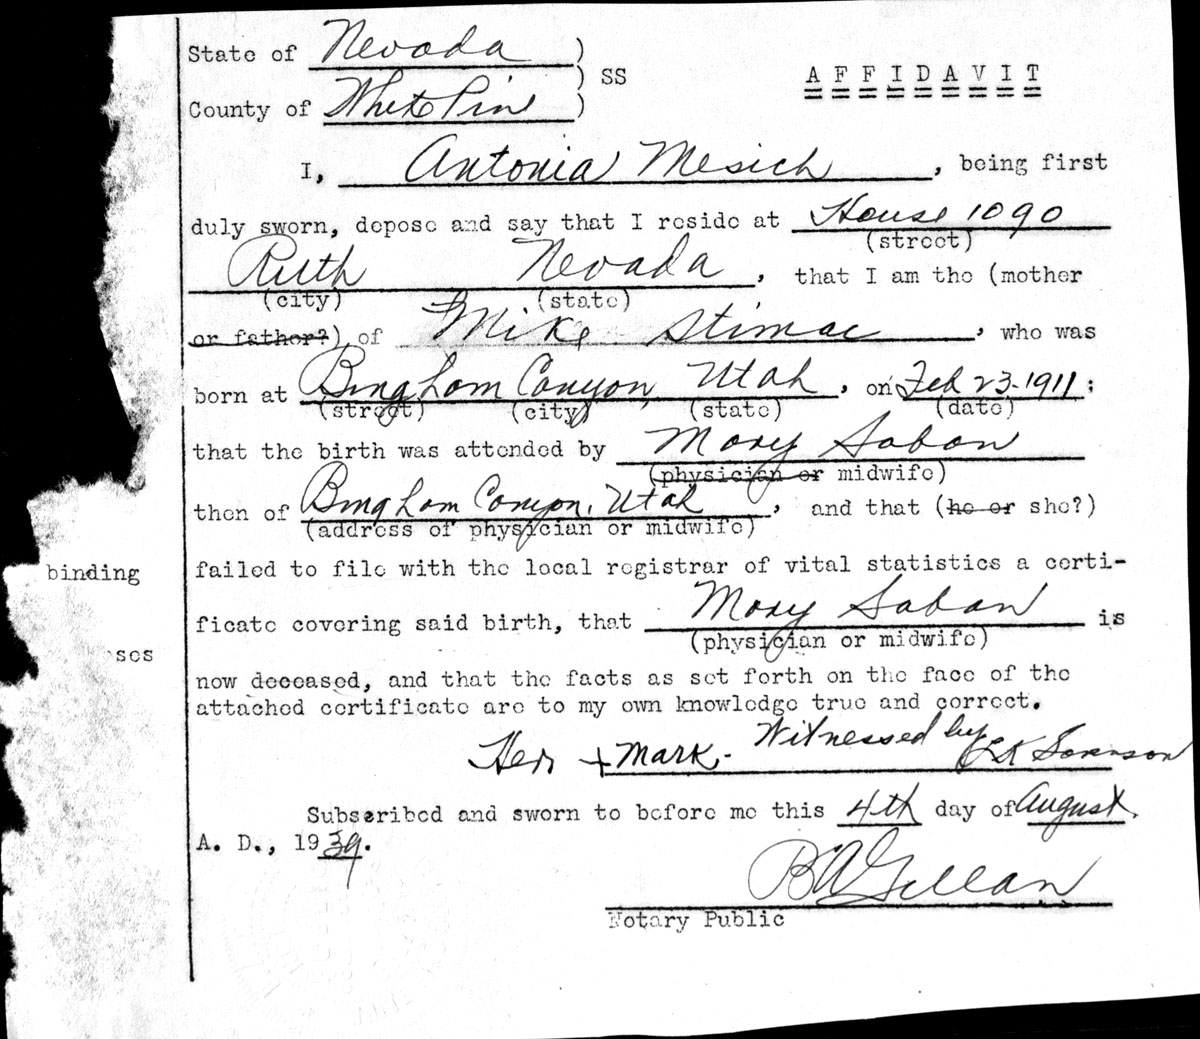 State of Nevada )
) SS
AFFIDAVIT
County of White Pine )
I, Antonia Mesich, being first
duly sworn, depose and say that I reside at House 1090
(street)
Ruth Nevada, that I am the (mother
(city) (state)
or father?) of Mike Stimac, who was
born at Bingham Canyon, Utah, on Feb 23-1911;
(street) (city) (state) (date)
that the birth was attended by Mary Saban
(physician or midwife)
then of Bingham Canyon, Utah, and that (he or she?)
(address of physician or midwife)
binding
failed to file with the local registrar of vital statistics a certi-
ficate covering said birth, that Mary Saban is
(physician or midwife)
now deceased, and that the facts as set forth on the face of the
attached certificate are to my own knowledge true and correct.
Her + Mark. Witnessed by
Subscribed and sworn to before me this 4th day of August.
A. D., 1939.
Notary Public